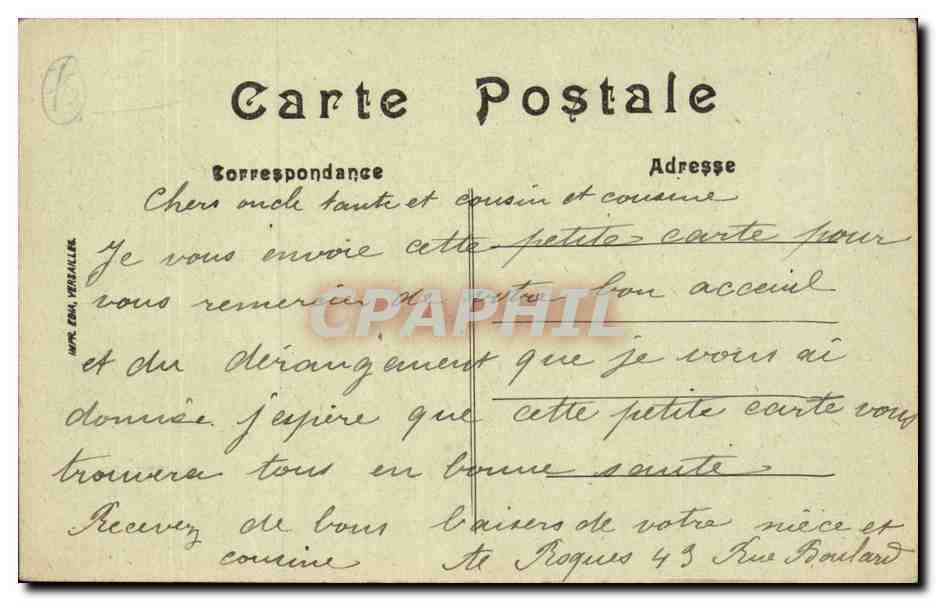 Carte Postale
Correspondance
Adresse
Chers oncle tante et cousin et cousine
Je vous envoie cette petite carte pour
vous remercier de votre bon acceuil
et du dérangement que je vous ai
donnée. j'espère que cette petite carte vous
trouvera tous en bonne santé
Recevez de bons baisers de votre nièce et
cousine
Roques 43 Rue Boulard
IMPR. EDIA, VERSAILLES.
CPAPHIL